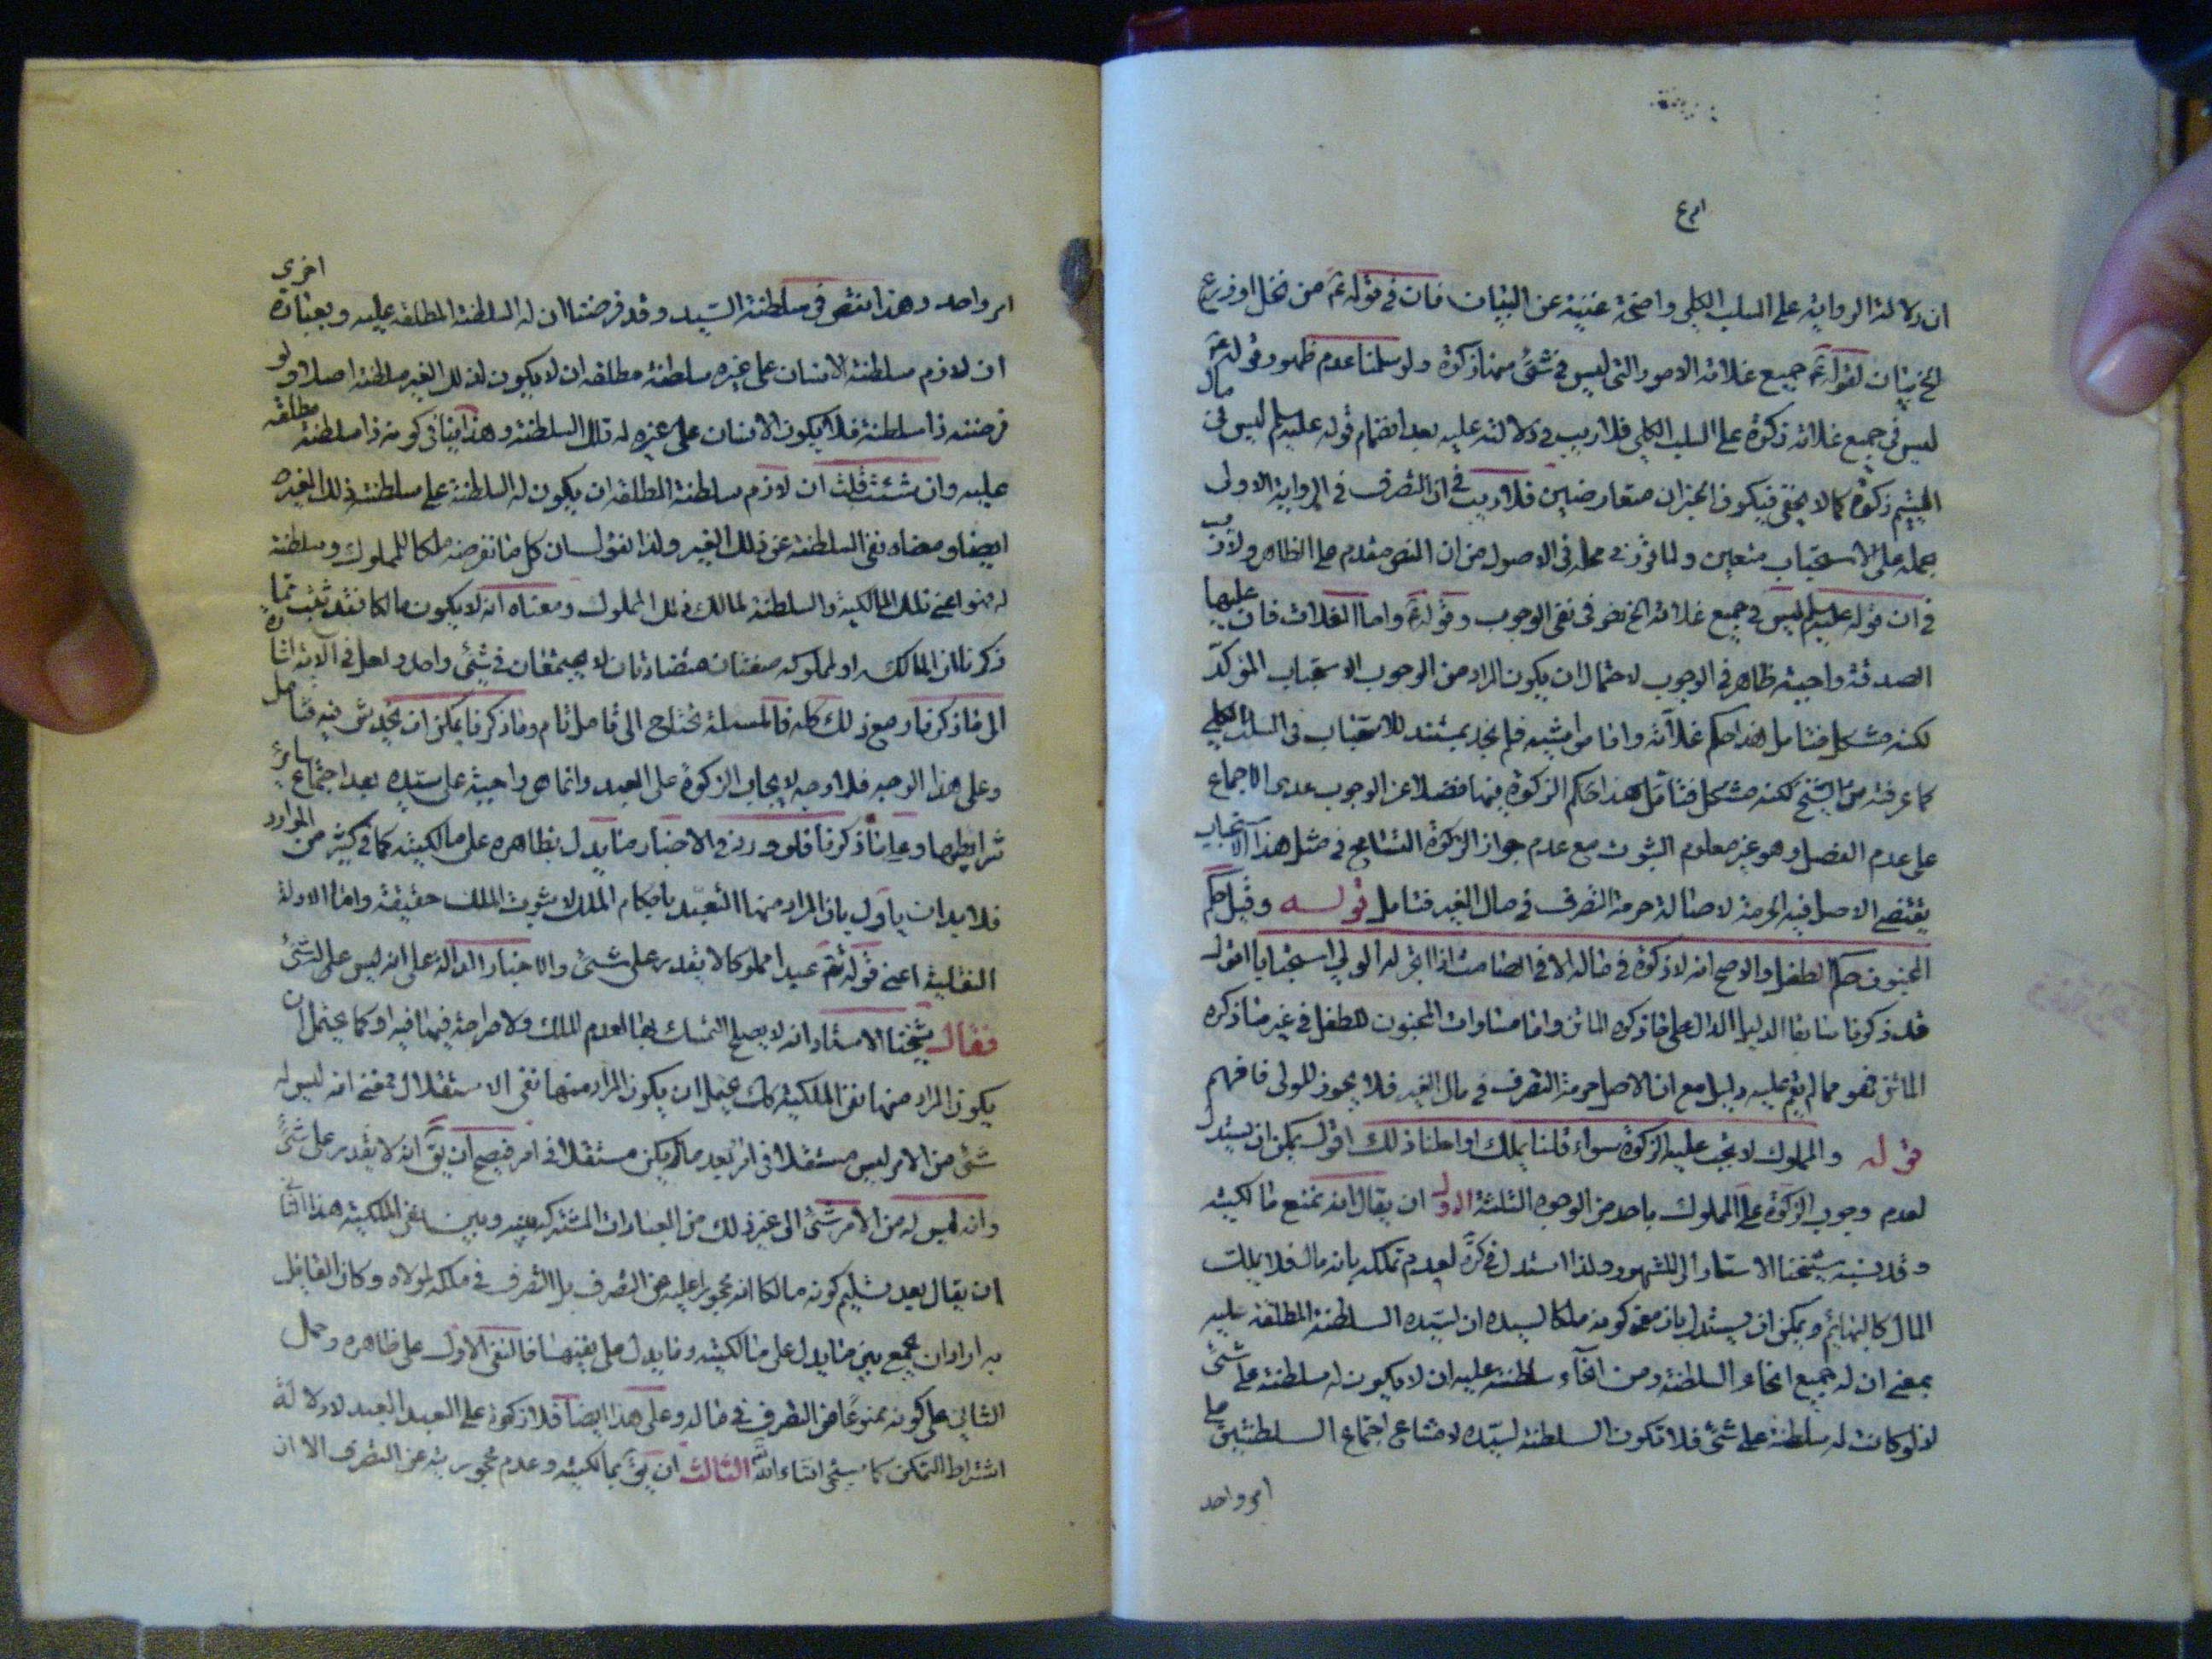 ان دلالة الرواية على السلب الكلي واضحة غنية عن البيان فان في قوله ع من نخل او زرع
الخ بيان لقوله ع جميع غلاته الامور التي ليس في شئ منها زكوة ولو سلمنا عدم ظهور قوله ع
ليس في جميع غلاته زكوة على السلب الكلي فلا ريب في دلالته عليه بعد انضمام قوله عليه السلم ليس في مال
اليتيم زكوة كما لا يخفى فيكون الخبران متعارضين فلا ريب في ان التصرف في الرواية الاولى
بحمله على الاستحباب متعين ولما قرر في محله في الاصول من ان النص مقدم على الظاهر ولا ريب
في ان قوله عليه السلم ليس في جميع غلاته الخ نص في نفى الوجوب وقوله ع واما الغلات فان عليها
الصدقة واجبة ظاهر في الوجوب لاحتمال ان يكون المراد من الوجوب الاستحباب المؤكد
لكنه مشكل فتامل هذا حكم غلاته واما مواشيه فلم نجد بمستند للاستحباب في السلب الكلي
كما عرفته من الشيخ لكنه مشكل فتامل هذا حكم الزكوة فيها فضلا عن الوجوب عدى الاجماع
على عدم الفصل وهو غير معلوم الثبوت مع عدم جواز الزكوة التسامح في مثل هذا الاستحباب
يقتضى الاصل فيه الحرمة لاصالة حرمة التصرف في مال الغير فتامل قوله وقيل حكم
المجنون حكم الطفل والاصح انه لا زكوة في ماله الا في الصامت اذا اتجر له الولي استحبابا اقول
قد ذكرنا سابقا الدليل الدال على ما ذكره الماتن واما مساوات المجنون للطفل في غير ما ذكره
الماتن فهو مما لم يقم عليه دليل مع ان الاصل حرمة التصرف في مال الغير فلا يجوز للولى فافهم
قوله والمملوك لا يجب عليه الزكوة سواء قلنا يملك او احلنا ذلك اقول يمكن ان يستدل
لعدم وجوب الزكوة على المملوك باحد من الوجوه الثلثة الاول ان يقال انه نمنع مالكيته
وقد نسبه شيخنا الاستاد الى المشهور ولذا استدل في كرة لعدم تملكه بانه مال فلا يملك
المال كالبهائم ويمكن ان يستدل بان معنى كونه ملكا لسيده ان لسيده السلطنة المطلقة عليه
بمعنى ان له جميع انحاء السلطنة ومن انحاء سلطنته عليه ان لا يكون له سلطنة على شئ
لانه لو كانت له سلطنة على شئ فلا تكون السلطنة لسيده لامتناع اجتماع السلطنتين على
امر واحد
امر واحد وهذا نقص في سلطنة السيد وقد فرضنا ان له السلطنة المطلقة عليه وبعبارة اخرى
ان لازم سلطنة الانسان على غيره سلطنة مطلقه ان لا يكون لذلك الغير سلطنة اصلا ولو
فرضته ذا سلطنة فلا يكون الانسان على غيره له تلك السلطنة وهذا ينافى كونه ذا سلطنة مطلقه
عليه وان شئت قلت ان لازم سلطنة المطلقه ان يكون له السلطنة على سلطنة ذلك الغير
ايضا ومعناه نفى السلطنة عن ذلك الغير ولذا نقول ان كل ما نفرضه ملكا للمملوك وسلطنة
له فهو اعنى تلك المالكية والسلطنة لمالك ذلك المملوك ومعناه انه لا يكون مالكا فقد ثبت مما
ذكرنا ان المالكيه والمملوكيه صفتان متضادتان لا يجتمعان في شئ واحد ولعل في الآية اشارة
الى ما ذكرنا ومع ذلك كله فالمسئلة تحتاج الى تامل تام وما ذكرنا يمكن ان يخدش فيه فتامل
وعلى هذا الوجه فلا وجه لايجاب الزكوة على العبد وانما هي واجبة على سيده بعد اجتماع سائر
شرايطها وعلى ما ذكرنا فلو ورد في الاخبار ما يدل بظاهره على مالكيته كما في كثير من الموارد
فلا بد ان ياول بان المراد منها التعبد باحكام الملك لا ثبوت الملك حقيقة واما الادلة
النقلية اعنى قوله تعم عبدا مملوكا لا يقدر على شئ والاخبار الدالة على انه ليس على الشئ
فقال شيخنا الاستاد انه لا يصلح التمسك بها لعدم الملك ولا صراحة فيها فيه وكما يحتمل ان
يكون المراد منها نفى الملكية كك يحتمل ان يكون المراد منها نفى الاستقلال بمعنى انه ليس له
شئ من الامر ليس مستقلا في امر بعد ما لم يكن مستقلا في امر فيصح ان يق انه لا يقدر على شئ
وانه ليس له من الامر شئ الى غير ذلك من العبارات المشتركه بينه وبين نفى الملكية هذا الثاني
ان يقال بعد تسليم كونه مالكا انه محجور عليه عن التصرف بل التصرف في ملكه لمولاه وكان القائل
به اراد ان يجمع بين ما يدل على مالكيته وما يدل على نفيها فالنفى الاول على ظاهره وحمل
الثاني على كونه ممنوعا من التصرف في ماله وعلى هذا ايضا فلا زكوة على العبد العبد لادلة
اشتراط التمكن كما سيجئ انشاء الله الثالث ان يق بمالكيته وعدم محجوريته عن التصرف الا ان